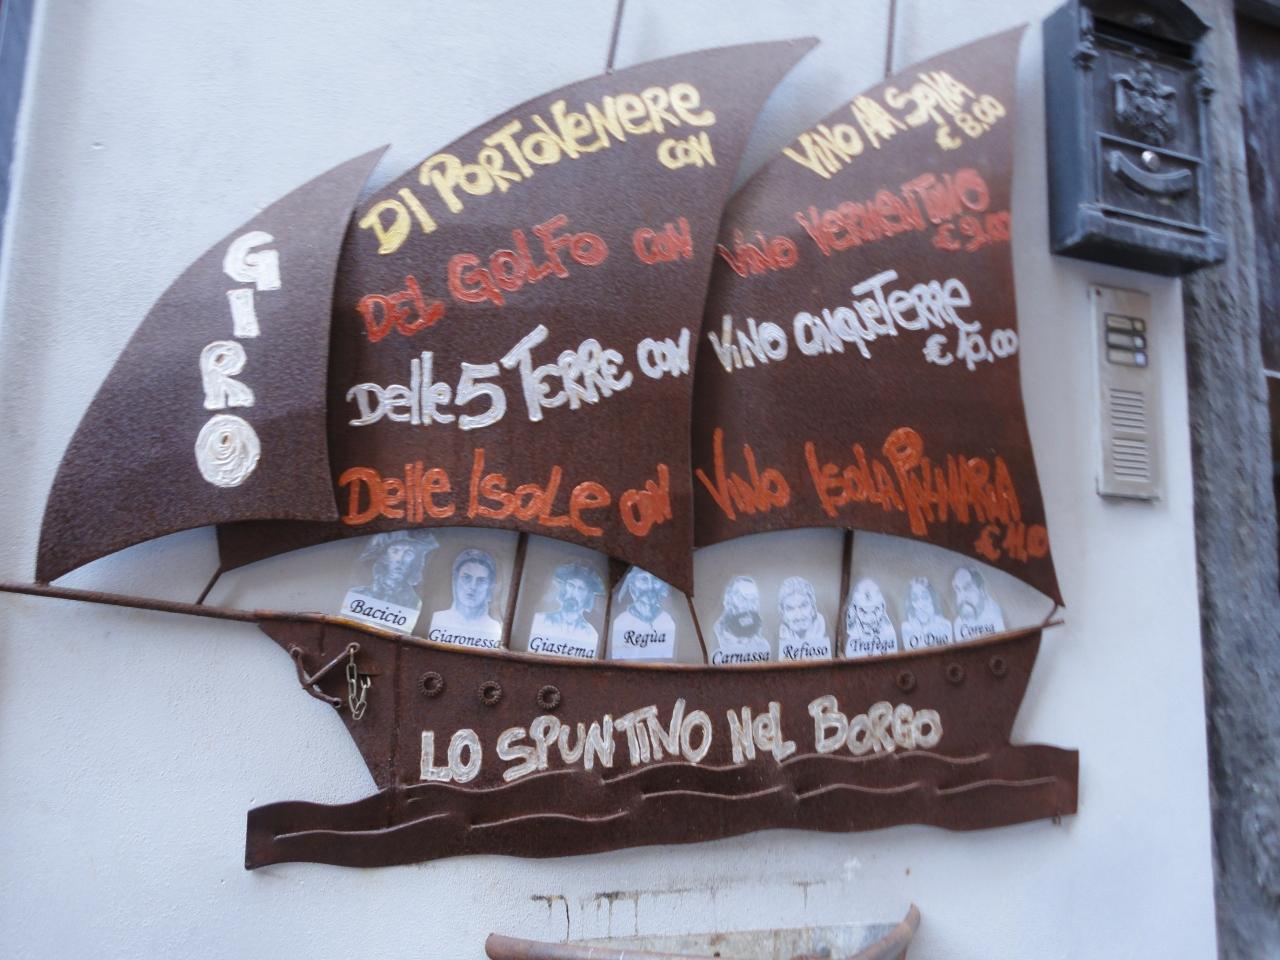 GIRO
DI PORTOVENERE
CON
VINO
€ 8,00
DEL GOLFO CON
VINO VERMENTINO
€ 9,00
Delle 5 TERRE CON
VINO CINQUETERRE
€ 10,00
Delle Isole CON
VINO ISOLA PALMARIA
€ 11,00
Bacicio
Giaronessa
Giastema
Regùa
Carnassa
Refioso
Trafega
O' Duo
Coresa
LO SPUNTINO NEL BORGO